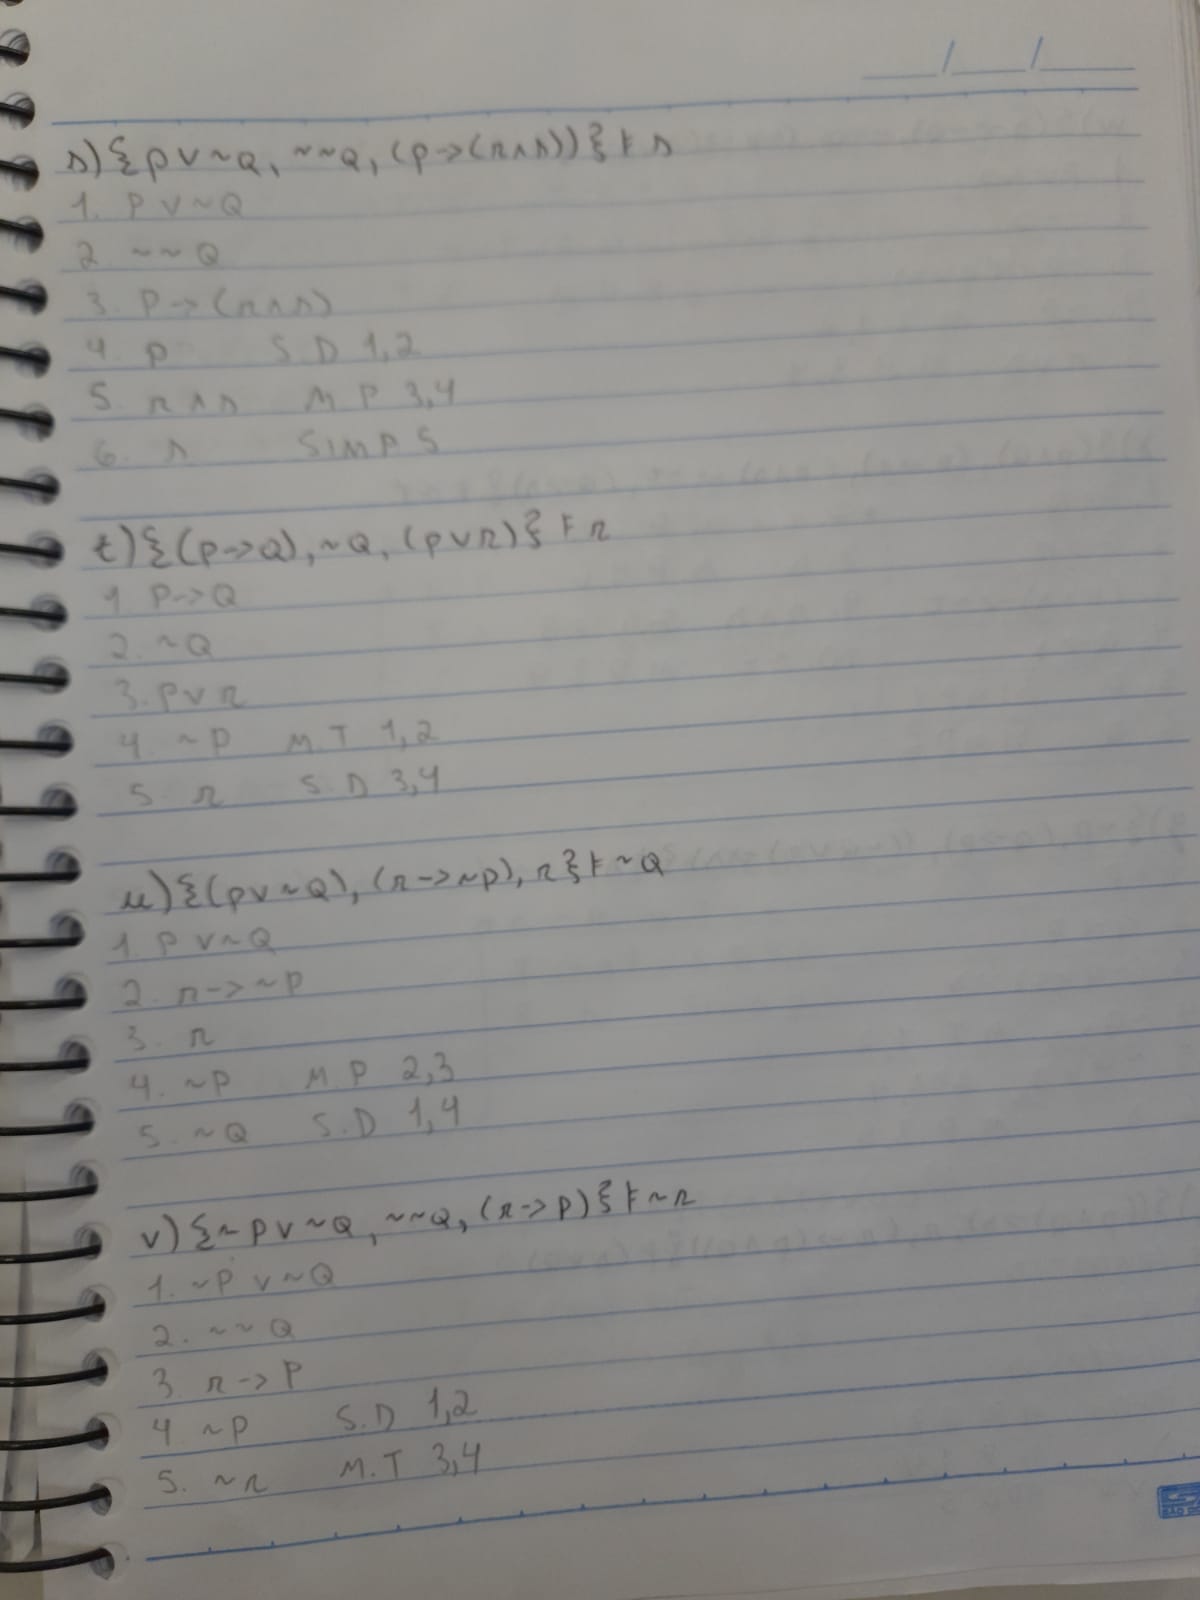 ___/___/___
s) {P ∨ ~Q, ~~Q, (P -> (R ∧ S))} ⊧ S
1. P ∨ ~Q
2 ~~Q
3. P -> (R ∧ S)
4 P S D 1,2
5. R ∧ S M P 3,4
6. S SIMP 5
t) {(P -> Q), ~Q, (P ∨ R)} ⊧ R
1 P -> Q
2. ~Q
3. P ∨ R
4. ~P M.T 1,2
5. R S.D 3,4
u) {(P ∨ ~Q), (R -> ~P), R} ⊧ ~Q
1. P ∨ ~Q
2. R -> ~P
3. R
4. ~P M.P 2,3
5. ~Q S.D 1,4
v) {~P ∨ ~Q, ~~Q, (R -> P)} ⊧ ~R
1. ~P ∨ ~Q
2. ~~Q
3 R -> P
4 ~P S.D 1,2
5. ~R M.T 3,4